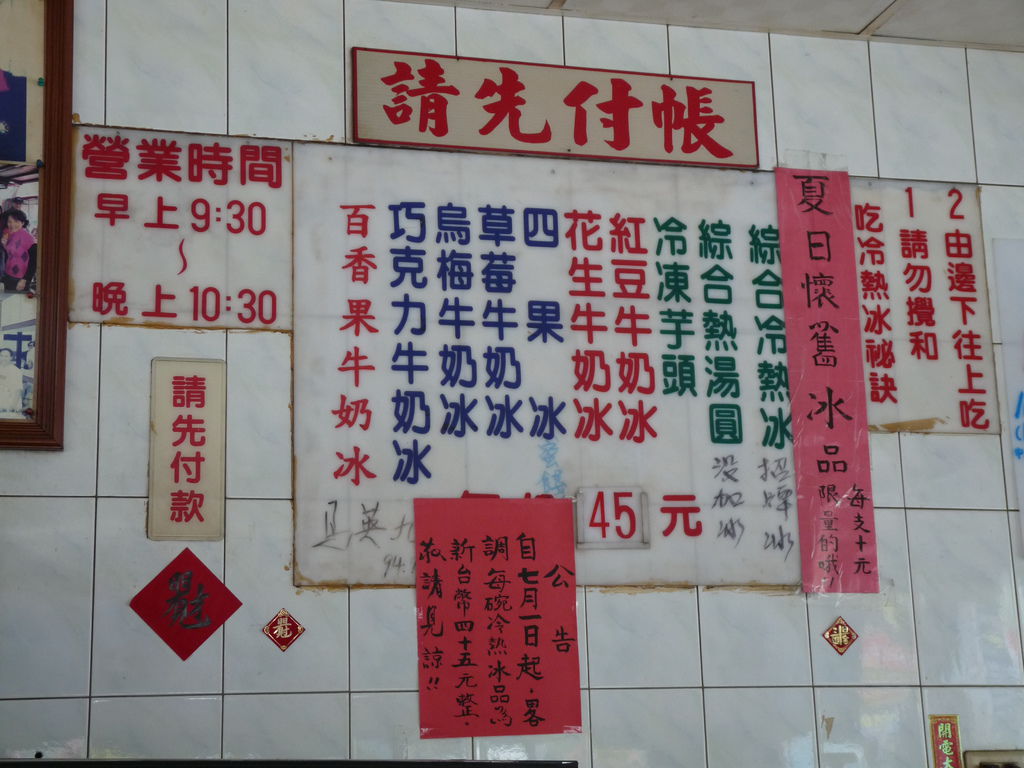 請先付帳
營業時間
早上9:30
~
晚上10:30
請先付款
2由邊下往上吃
1請勿攪和
吃冷熱冰祕訣
夏日懷舊冰品
每支十元
限量的哦!
綜合冷熱冰
招牌冰
綜合熱湯圓
沒加冰
冷凍芋頭
紅豆牛奶冰
花生牛奶冰
四果冰
草莓牛奶冰
烏梅牛奶冰
巧克力牛奶冰
百香果牛奶冰
45元
公告
自七月一日起,畧
調每碗冷熱冰品為
新台幣四十五元整.
敬請見諒!!